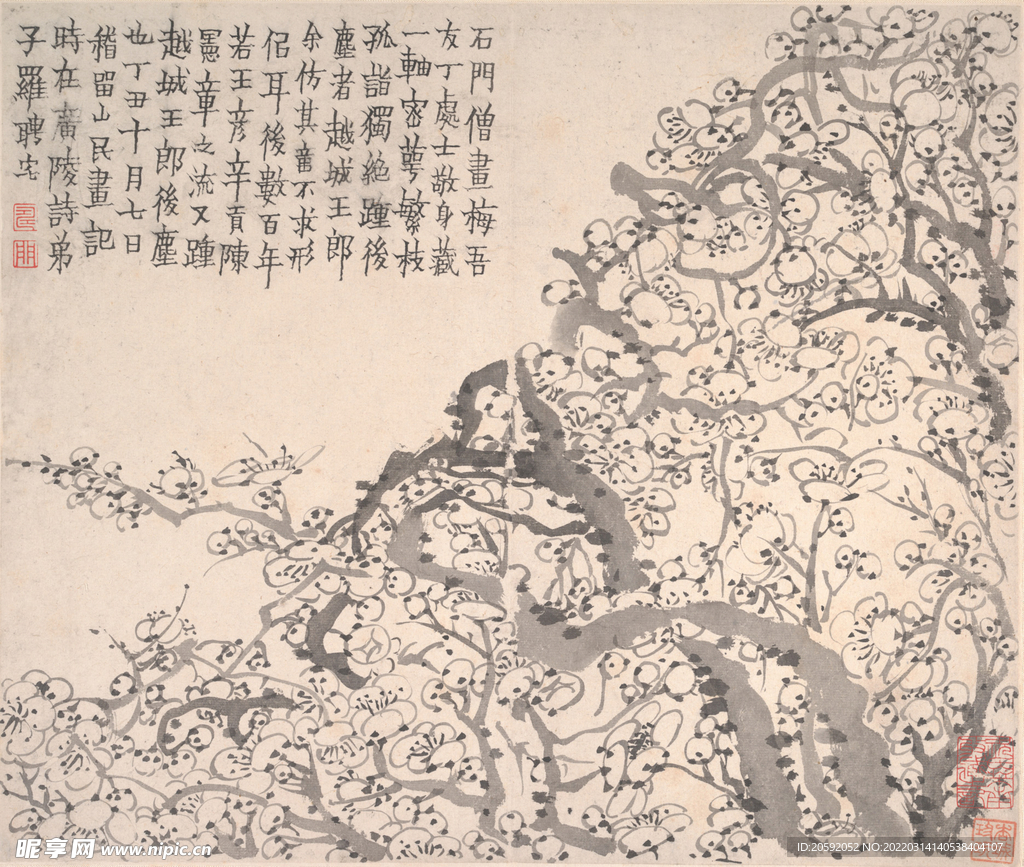 石門僧畫梅吾
友丁處士敬身藏
一軸密萼繁枝
孤詣獨絶踵後
塵者越城王郎
余仿其意不求形
似耳後數百年
若王彦辛貢陳
憲章之流又踵
越城王郎後塵
也丁丑十月七日
稽留山民畫記
時在廣陵詩弟
子羅聘宅
昵享网 www.nipic.cn
ID:20592052 NO:20220314140538404107